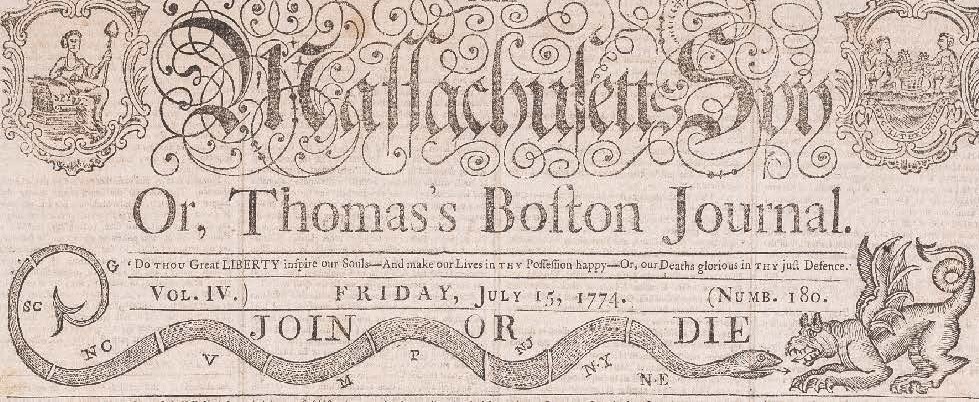 Maſſachuſetts Spy
Or, Thomas's Boſton Journal.
'Do THOU Great LIBERTY inſpire our Souls—And make our Lives in THY Poſſeſſion happy—Or, our Deaths glorious in THY juſt Defence.'
VOL. IV.) FRIDAY, JULY 15, 1774. (NUMB. 180.
JOIN OR DIE
G
SC
NC
V
M
P
NJ
N·Y
N·E